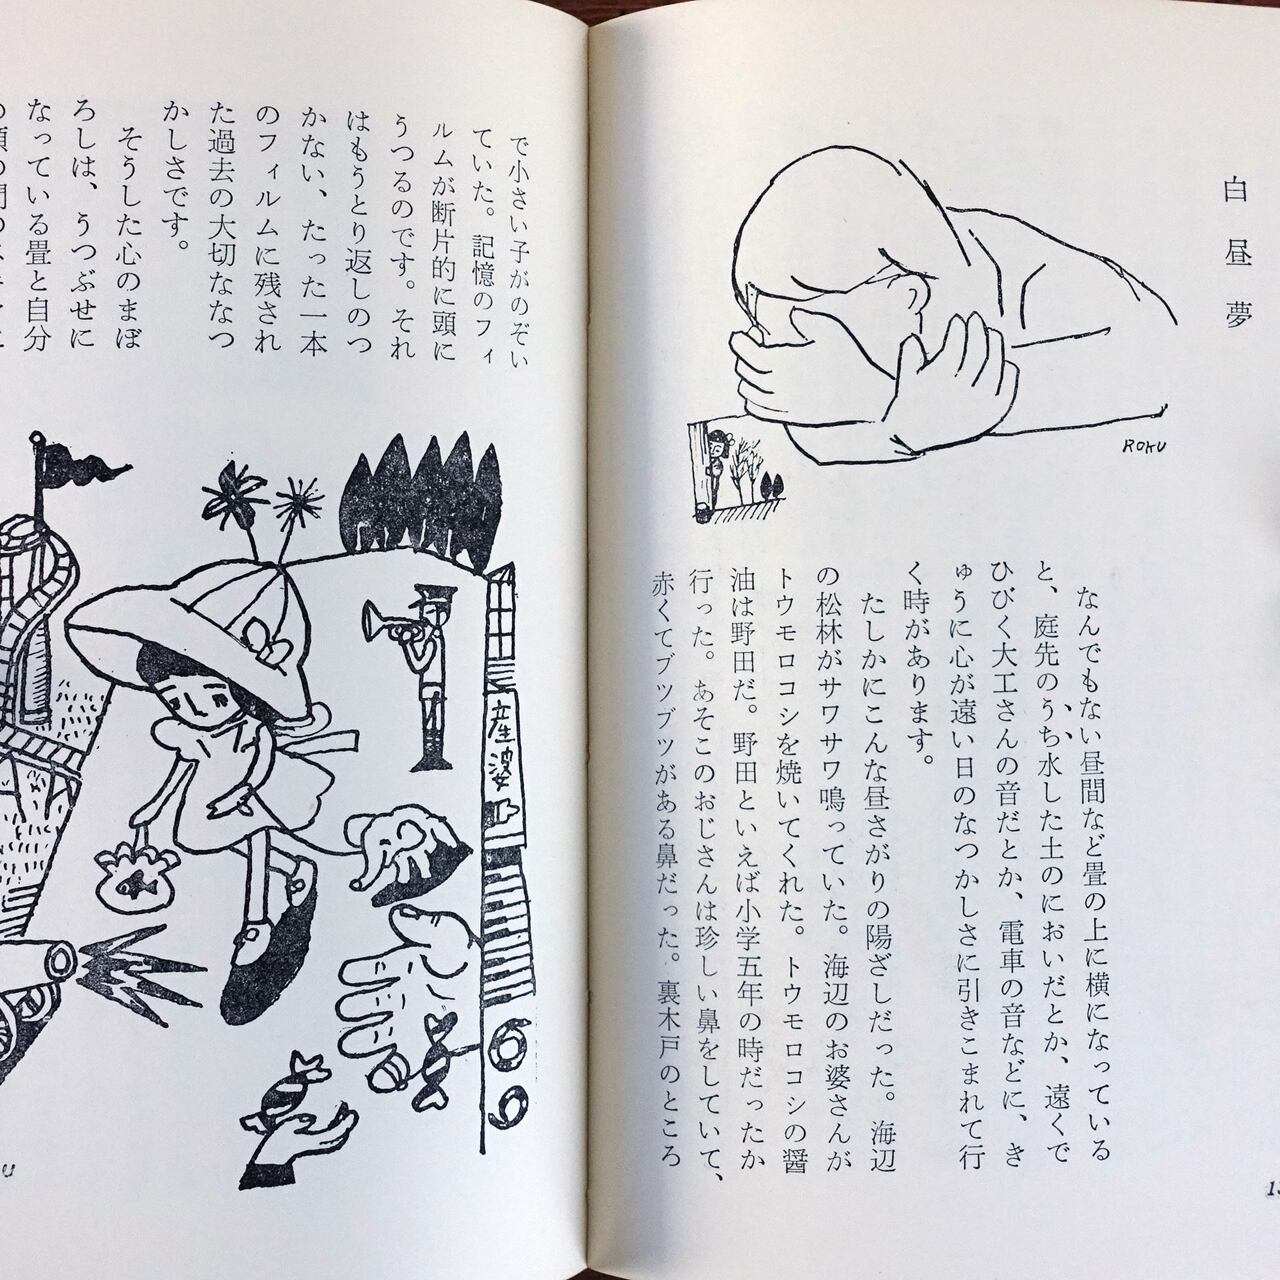 白昼夢
ROKU
なんでもない昼間など畳の上に横になっている
と、庭先のうち水した土のにおいだとか、遠くで
ひびく大工さんの音だとか、電車の音などに、き
ゅうに心が遠い日のなつかしさに引きこまれて行
く時があります。
たしかにこんな昼さがりの陽ざしだった。海辺
の松林がサワサワ鳴っていた。海辺のお婆さんが
トウモロコシを焼いてくれた。トウモロコシの醤
油は野田だ。野田といえば小学五年の時だったか
行った。あそこのおじさんは珍しい鼻をしていて、
赤くてブツブツがある鼻だった。裏木戸のところ
で小さい子がのぞい
ていた。記憶のフィ
ルムが断片的に頭に
うつるのです。それ
はもうとり返しのつ
かない、たった一本
のフィルムに残され
た過去の大切ななつ
かしさです。
そうした心のまぼ
ろしは、うつぶせに
なっている畳と自分
産婆
69